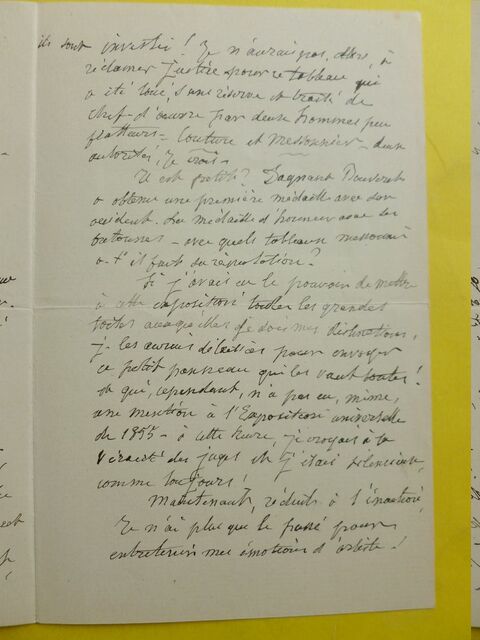 ils sont investis! Je n'aurai pas, alors, à
réclamer justice pour ce tableau qui
a été loué, sans réserve et traité de
chef-d'oeuvre par deux hommes peu
flatteurs - Couture et Messonnier, deux
autorités, je crois -
Il est petit? Dagnant Bouveret
a obtenu une première médaille avec son
accident. La médaille d'honneur avec ses
bretonnes - avec quels tableaux messonnier
a-t'il fait sa réputation?
Si j'avais eu le pouvoir de mettre
à cette exposition toutes les grandes
toiles auxquelles je dois mes distinctions,
je les aurais délaissées pour envoyer
ce petit panneau qui les vaut toutes!
et qui, cependant, n'a pas eu, même,
une mention à l'Exposition universelle
de 1855 - à cette heure, je croyais à la
véracité des juges et j'étais silencieux,
comme toujours!
Maintenant, réduits à l'inaction,
Je n'ai plus que le passé pour
entretenir mes émotions d'artiste!